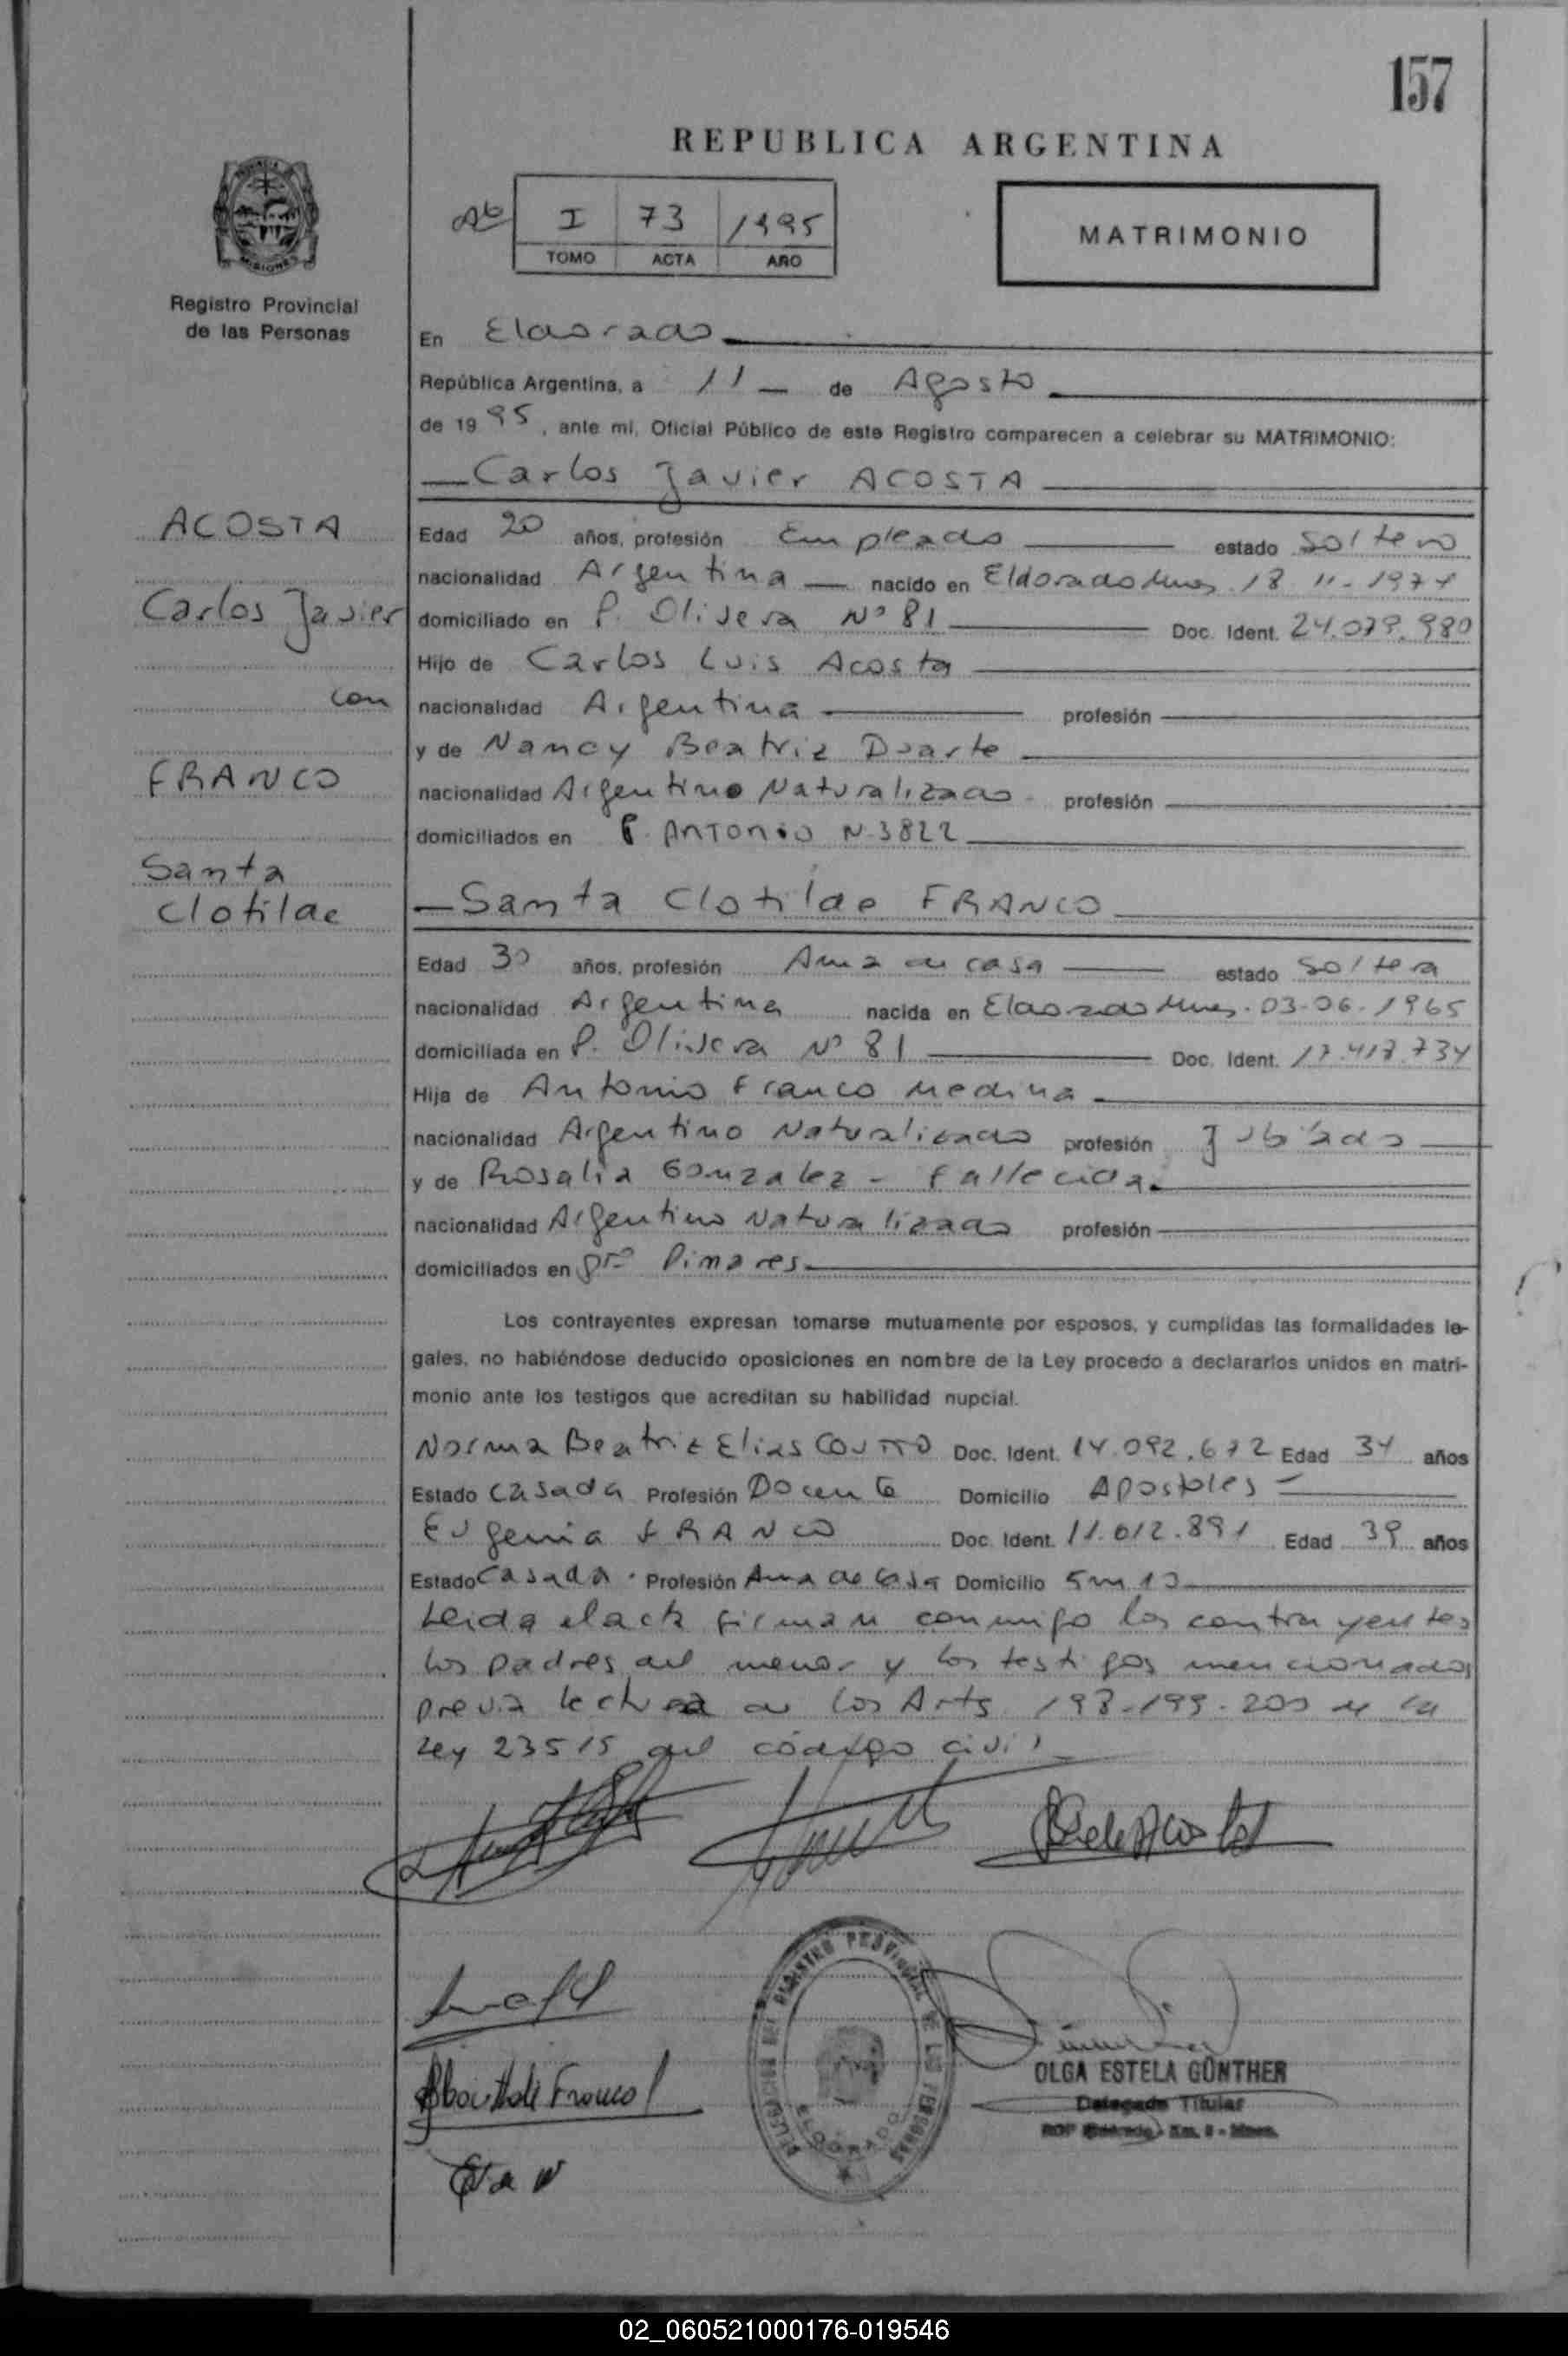 157
REPUBLICA ARGENTINA
I 73 1995
TOMO ACTA AÑO
MATRIMONIO
MISIONES
Registro Provincial
de las Personas
En Eldorado
República Argentina, a 11 de Agosto
de 1995, ante mi, Oficial Público de este Registro comparecen a celebrar su MATRIMONIO:
Carlos Javier ACOSTA
ACOSTA
Carlos Javier
con
FRANCO
Santa
Clotilde
Edad 20 años, profesión Empleado estado Soltero
nacionalidad Argentina nacido en Eldorado Mnes. 18-11-1974
domiciliado en P. Olivera Nº 81 Doc. Ident. 24.079.980
Hijo de Carlos Luis Acosta
nacionalidad Argentina profesión
y de Nancy Beatriz Duarte
nacionalidad Argentino Naturalizado profesión
domiciliados en P. Antonio N. 3822
Santa Clotilde FRANCO
Edad 30 años, profesión Ama de casa estado Soltera
nacionalidad Argentina nacida en Eldorado Mnes. 03-06-1965
domiciliada en P. Olivera Nº 81 Doc. Ident. 17.417.734
Hija de Antonio Franco Medina
nacionalidad Argentino Naturalizado profesión Jubilado
y de Rosalia Gonzalez - Fallecida.
nacionalidad Argentino Naturalizado profesión
domiciliados en Pinares
Los contrayentes expresan tomarse mutuamente por esposos, y cumplidas las formalidades le-
gales, no habiéndose deducido oposiciones en nombre de la Ley procedo a declararlos unidos en matri-
monio ante los testigos que acreditan su habilidad nupcial.
Norma Beatriz Elias Doc. Ident. 14.092.672 Edad 34 años
Estado Casada Profesión Docente Domicilio Apostoles
Eugenia FRANCO Doc. Ident. 11.012.891 Edad 39 años
Estado Casada. Profesión Ama de Casa Domicilio 5m 10
Leida el acta firman conmigo los contrayentes
los padres del menor y los testigos mencionados
previa lectura de los Arts 198-199-200 de la
Ley 23515 del código civil
DELEGACION DEL REGISTRO PROVINCIAL DE LAS PERSONAS
ELDORADO
OLGA ESTELA GÜNTHER
Delegado Titular
02_060521000176-019546